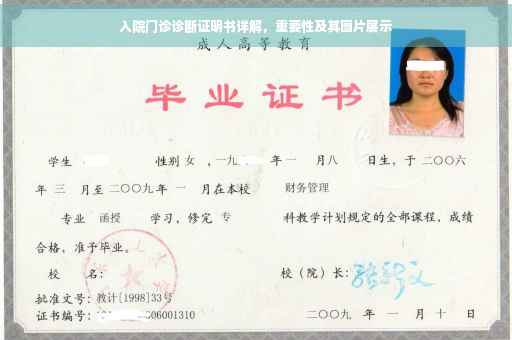 入院门诊诊断证明书详解，重要性及其图片展示
成人高等教育
毕业证书
学生 性别 女 ，一九 年 一 月八 日生，于 二〇〇六
年 三 月至 二〇〇九 年 一 月在本校 财务管理
专业 函授 学习，修完 专 科教学计划规定的全部课程，成绩
合格，准予毕业。
校 名： 校（院）长：
批准文号：教计[1998]33号
证书编号： 06001310 二〇〇九 年 一 月 十 日